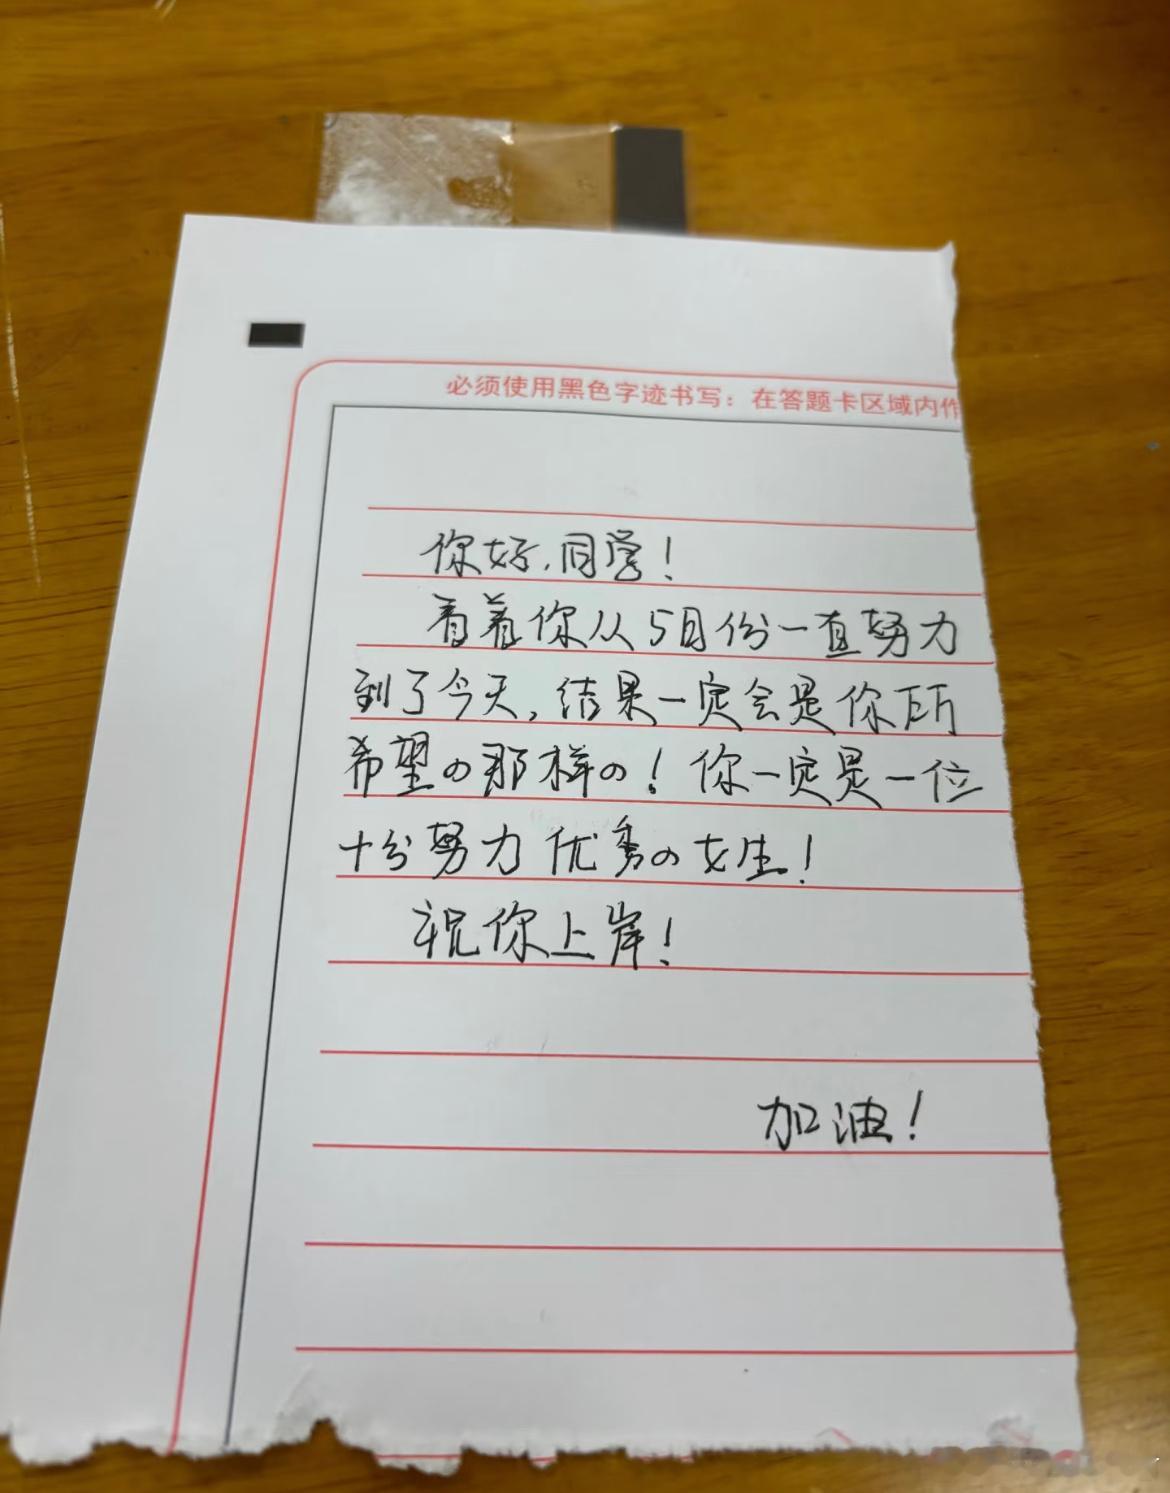 必须使用黑色字迹书写：在答题卡区域内作
你好，同学！
看着你从5月份一直努力
到了今天，结果一定会是你所
希望の那样の！你一定是一位
十分努力优秀の女生！
祝你上岸！
加油！